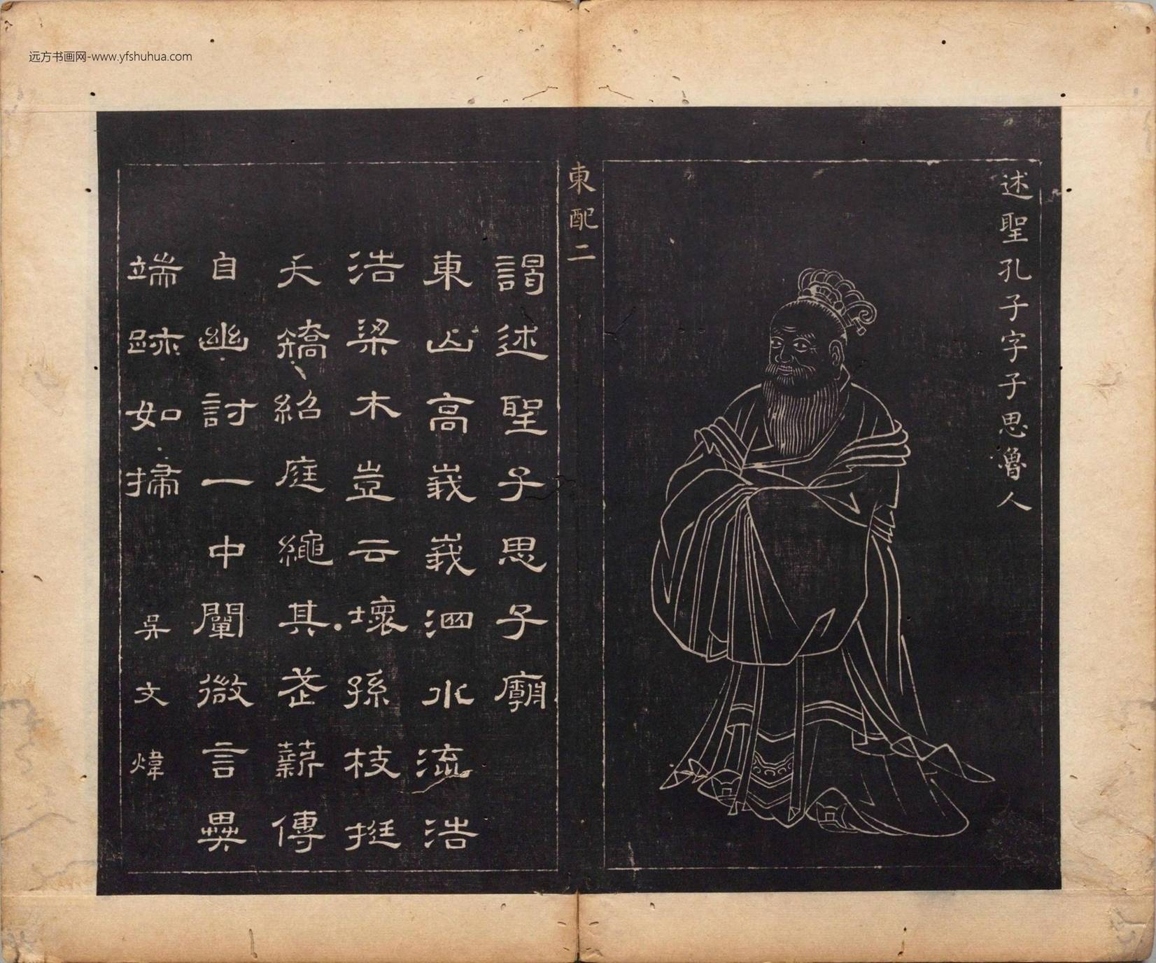 远方书画网-www.yfshuhua.com
述聖孔子字子思魯人
東配二
謁述聖子思子廟
東山高峩峩泗水流浩
浩梁木豈云壞孫枝挺
夭矯紹庭繩其武薪傳
自幽討一中闡微言異
端跡如掃
吳文煒